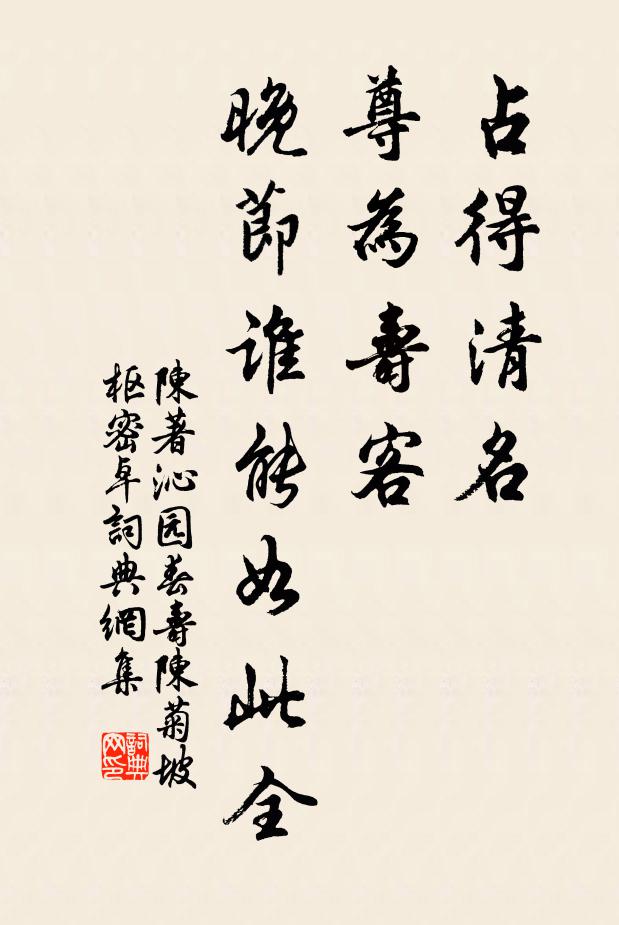 占得清名
尊為壽客
晚節谁能如此全
陳著沁园春壽陳菊坡
枢密卓詞典網集
詞典网印